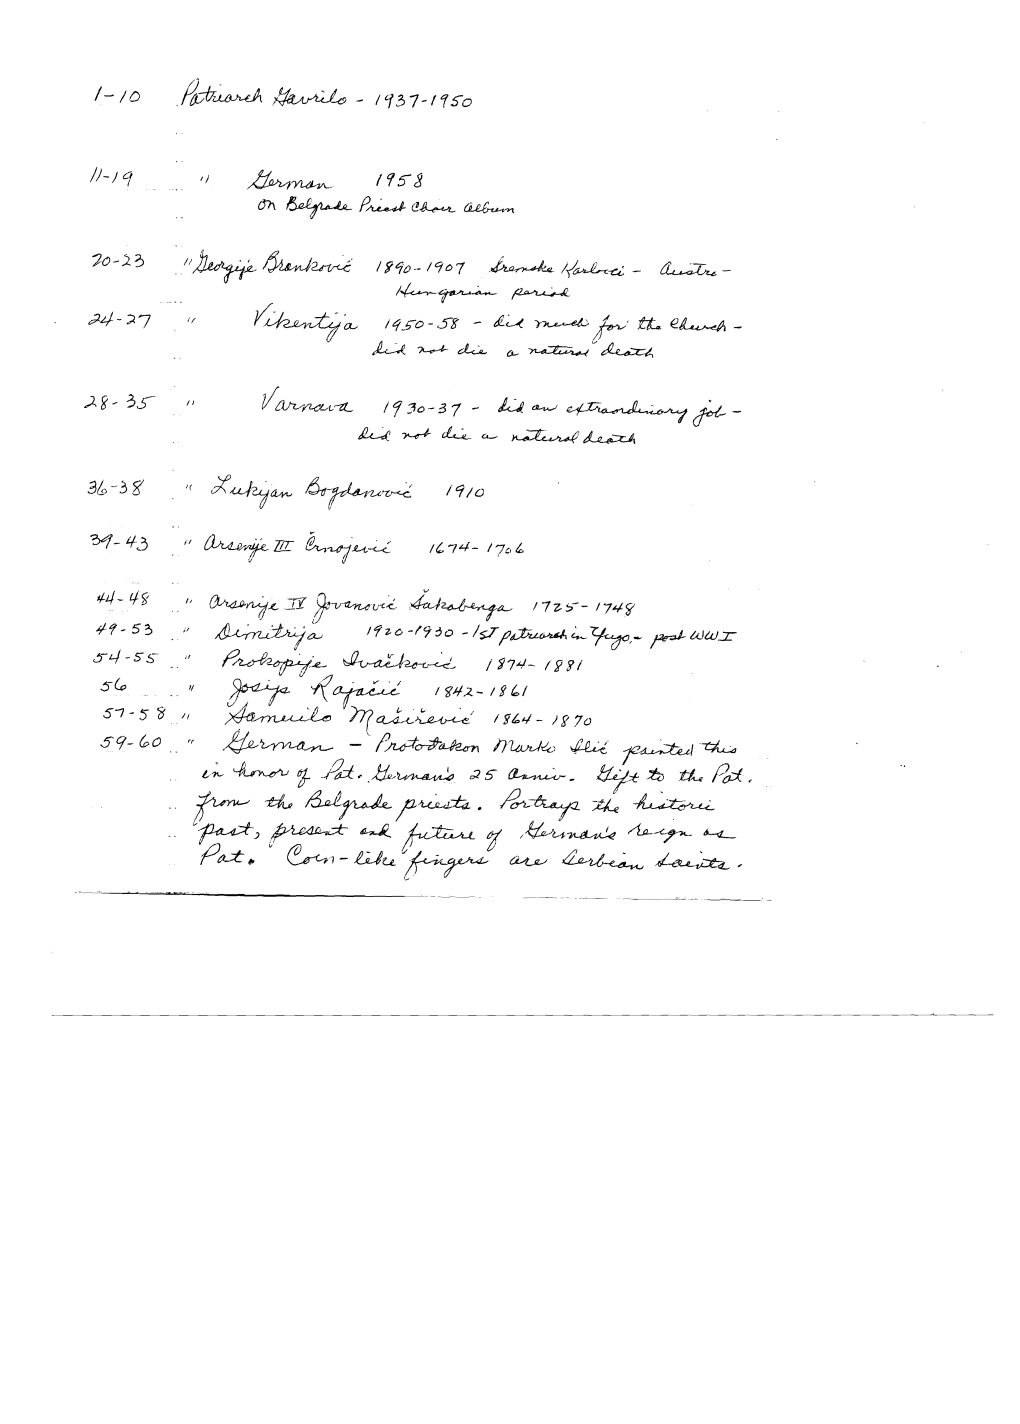 1-10 Patriarch Gavrilo - 1937-1950
11-19 " German 1958
on Belgrade Priest Choir Album
20-23 " Georgije Branković 1890-1907 Sremske Karlovci - Austro-
Hungarian period
24-27 " Vikentija 1950-58 - did much for the Church -
did not die a natural death
28-35 " Varnava 1930-37 - did an extraordinary job -
did not die a natural death
36-38 " Lukijan Bogdanović 1910
39-43 " Arsenije III Črnojević 1674-1706
44-48 " Arsenije IV Jovanović Šakabenga 1725-1748
49-53 " Dimitrija 1920-1930 - 1st patriarch in Yugo, - post WWI
54-55 " Prokopije Ivačković 1874-1881
56 " Josip Rajačić 1842-1861
57-58 " Samuilo Maširević 1864-1870
59-60 " German - Protođakon Marko Ilić painted this
in honor of Pat. German's 25 anniv. Gift to the Pat.
from the Belgrade priests. Portrays the historic
past, present and future of German's reign as
Pat. Coin-like fingers are Serbian saints.